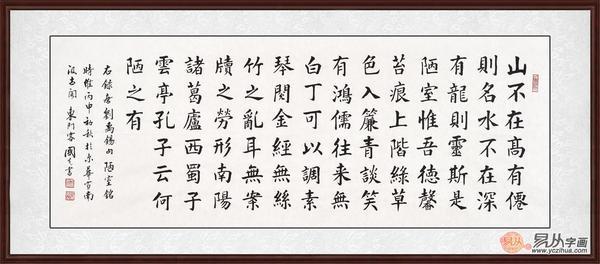 山不在高有僊
則名水不在深
有龍則靈斯是
陋室惟吾德馨
苔痕上階綠草
色入簾青談笑
有鴻儒往來無
白丁可以調素
琴閱金經無絲
竹之亂耳無案
牘之勞形南陽
諸葛廬西蜀子
雲亭孔子云何
陋之有
右錄唐劉禹錫的陋室銘
時惟丙申初秋於京華官南
國書
易从字画
www.yczihua.com